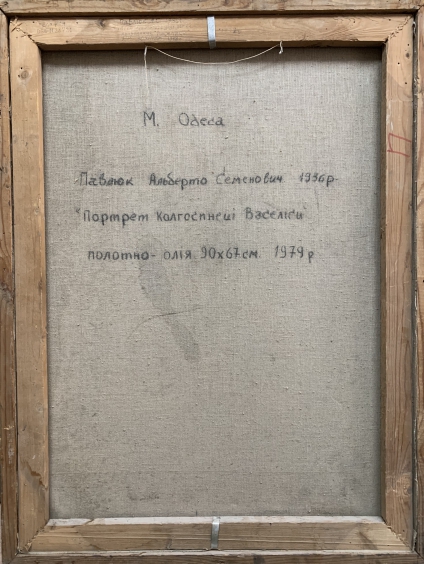 М. Одеса
Павлюк Альберто Семенович 1936р.
"Портрет колгоспнеці Васеліси"
полотно - олія 90х67см. 1979 р